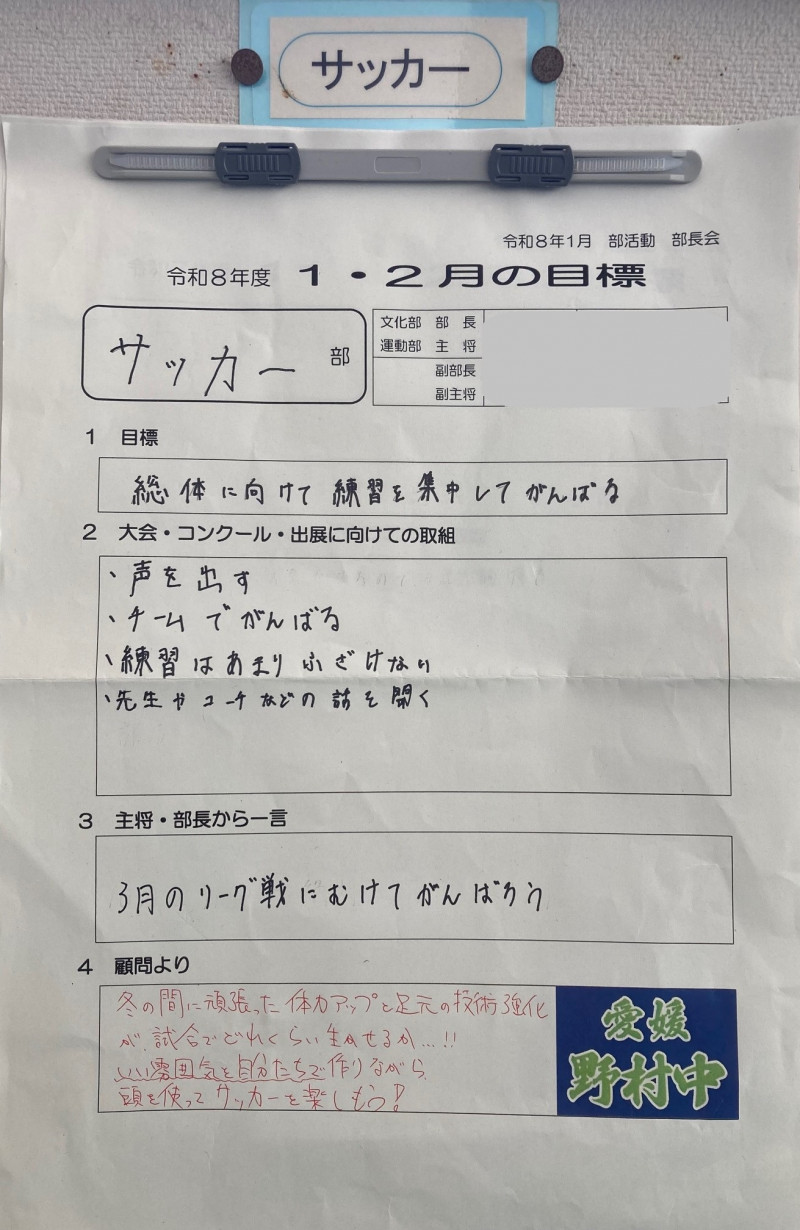 サッカー
令和8年1月 部活動 部長会
令和8年度 1・2月の目標
サッカー 部
文化部 部 長
運動部 主 将
副部長
副主将
1 目標
総体に向けて練習を集中してがんばる
2 大会・コンクール・出展に向けての取組
・声を出す
・チームでがんばる
・練習はあまりふざけない
・先生やコーチなどの話を聞く
3 主将・部長から一言
3月のリーグ戦にむけてがんばろう
4 顧問より
冬の間に頑張った体力アップと足元の技術強化
が、試合でどれくらい生かせるか…!!
いい雰囲気を自分たちで作りながら、
頭を使ってサッカーを楽しもう!
愛媛
野村中